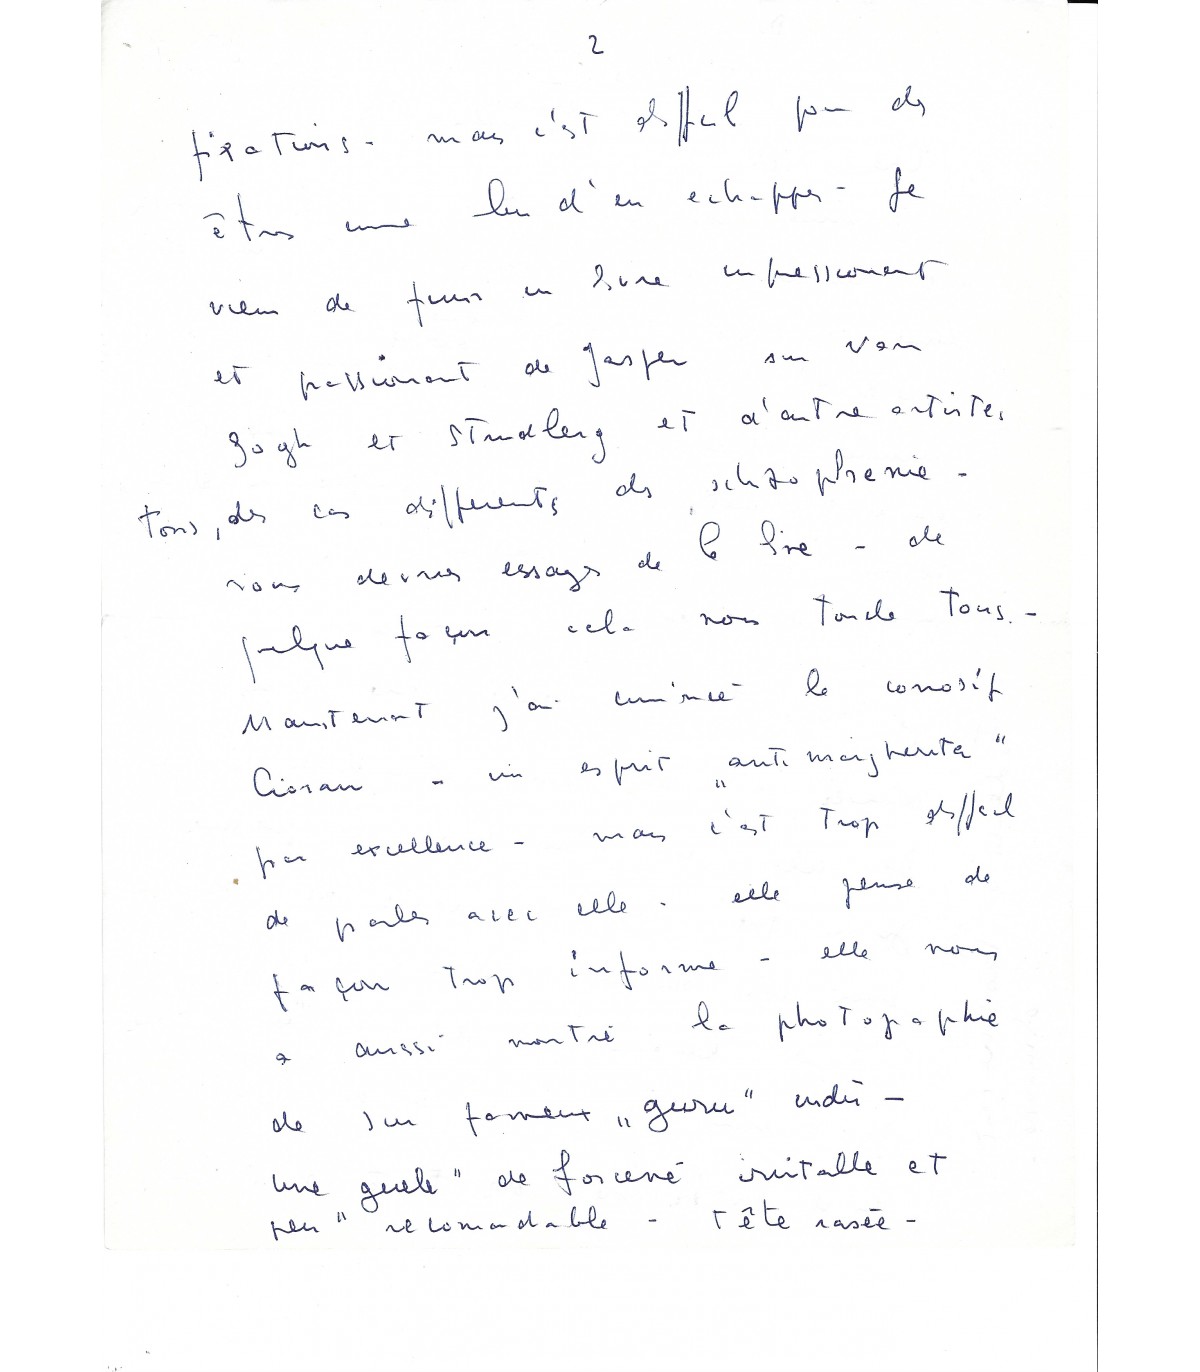 2
fixations - mais c'est difficil pour des
êtres comme d'en echapper - Je
viens de finir un livre impressionent
et passionant de Jasper sur van
Gogh et Strindberg et d'autre artistes
tous, des cas différents de schizophrenie -
vous devries essayer de le lire - de
quelque façon cela nous touche tous. -
Maintenant j'ai comincé le corrosif
Cioran - un esprit „anti margherita"
par excellence - mais c'est trop difficil
de parler avec elle. elle pense de
façon trop informe - elle nous
a aussi montré la photographie
de son fameux „guru" indù -
une guele" de forcené irritable et
peu" recomandable - tête rasée -